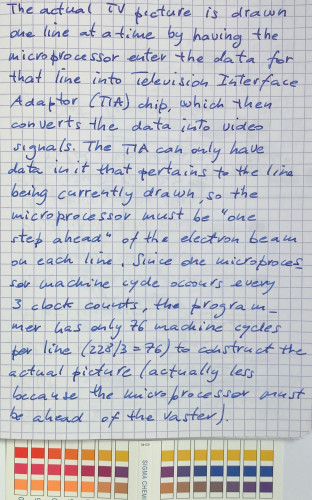 The actual TV picture is drawn
one line at a time by having the
microprocessor enter the data for
that line into Television Interface
Adaptor (TIA) chip, which then
converts the data into video
signals. The TIA can only have
data in it that pertains to the line
being currently drawn, so the
microprocessor must be "one
step ahead" of the electron beam
on each line. Since one microproces_
sor machine cycle occours every
3 clock counts, the program_
mer has only 76 machine cycles
per line (228/3=76) to construct the
actual picture (actually less
because the microprocessor must
be ahead of the raster).
SIGMA CHEM